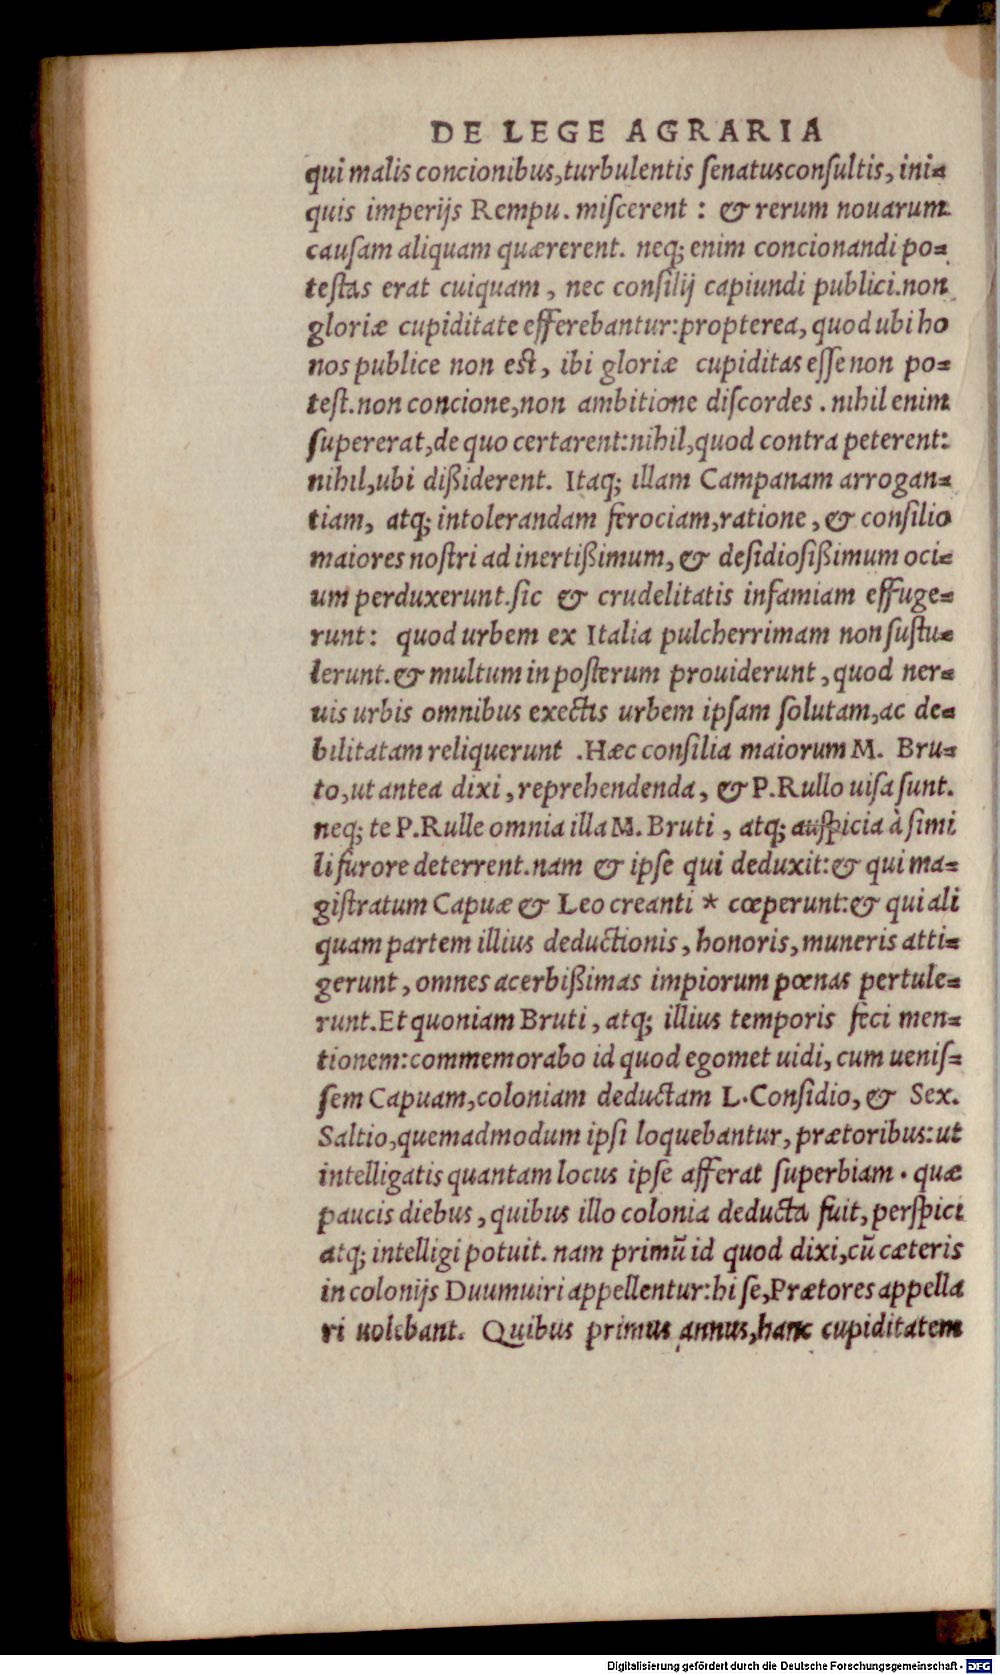 DE LEGE AGRARIA
qui malis concionibus,turbulentis ſenatusconſultis, ini=
quis imperijs Rempu. miſcerent : & rerum nouarum
cauſam aliquam quærerent. neq; enim concionandi po=
teſtas erat cuiquam, nec conſilij capiundi publici.non
gloriæ cupiditate efferebantur:propterea, quod ubi ho
nos publice non eſt, ibi gloriæ cupiditas eſſe non po=
teſt.non concione,non ambitione diſcordes . nihil enim
ſupererat,de quo certarent:nihil,quod contra peterent:
nihil,ubi dißiderent. Itaq; illam Campanam arrogan=
tiam, atq; intolerandam ferociam,ratione, & conſilio
maiores noſtri ad inertißimum, & deſidioſißimum oci=
um perduxerunt.ſic & crudelitatis infamiam effuge=
runt: quod urbem ex Italia pulcherrimam non ſuſtu=
lerunt.& multum in poſterum prouiderunt, quod ner=
uis urbis omnibus exectis urbem ipſam ſolutam,ac de=
bilitatam reliquerunt .Hæc conſilia maiorum M. Bru=
to,ut antea dixi, reprehendenda, & P.Rullo uiſa ſunt.
neq; te P.Rulle omnia illa M. Bruti, atq; auſpicia à ſimi
li furore deterrent.nam & ipſe qui deduxit:& qui ma=
giſtratum Capuæ & Leo creanti * cœperunt:& qui ali
quam partem illius deductionis, honoris, muneris atti=
gerunt, omnes acerbißimas impiorum pœnas pertule=
runt.Et quoniam Bruti, atq; illius temporis feci men=
tionem:commemorabo id quod egomet uidi, cum ueniſ=
ſem Capuam,coloniam deductam L.Conſidio, & Sex.
Saltio,quemadmodum ipſi loquebantur, prætoribus:ut
intelligatis quantam locus ipſe afferat ſuperbiam . quæ
paucis diebus, quibus illo colonia deducta fuit, perſpici
atq; intelligi potuit. nam primũ id quod dixi,cũ cæteris
in colonijs Duumuiri appellentur:hi ſe,Prætores appella
ri uolebant. Quibus primus annus,hanc cupiditatem
Digitalisierung gefördert durch die Deutsche Forschungsgemeinschaft - DFG